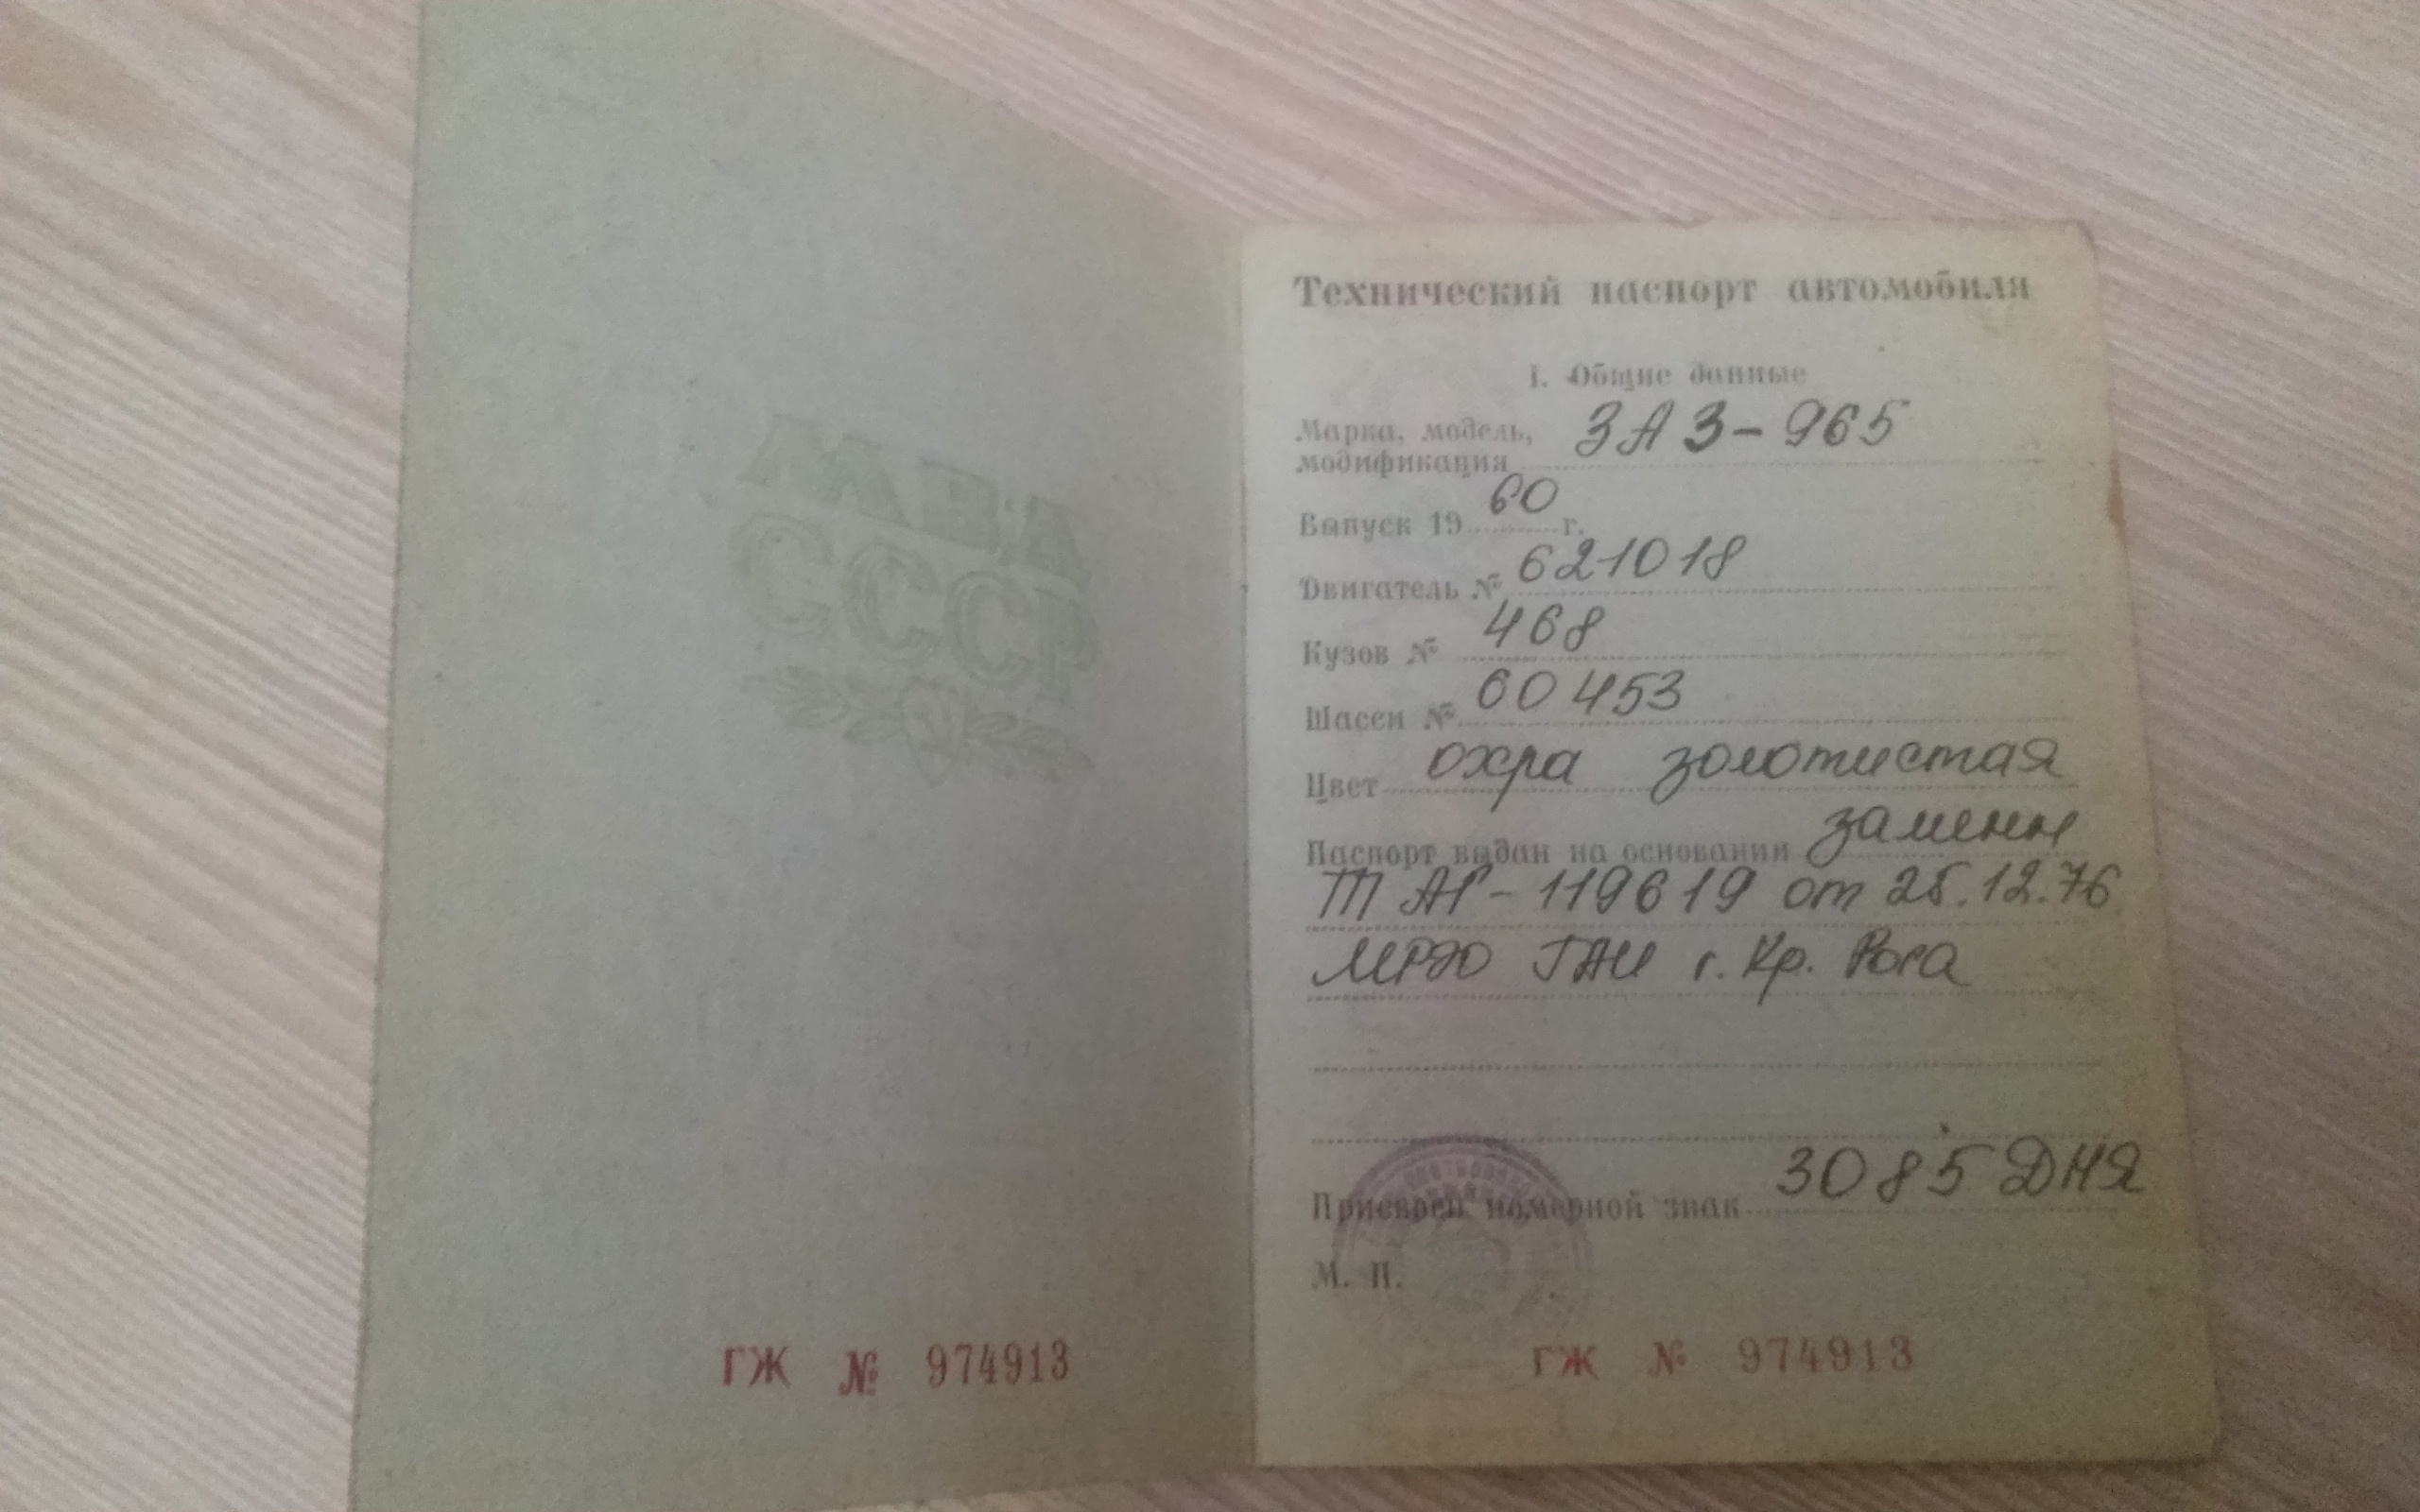 МВД
СССР
ГЖ № 974913
Технический паспорт автомобиля
I. Общие данные
Марка, модель, ЗАЗ-965
модификация
Выпуск 1960 г.
Двигатель № 621018
Кузов № 468
Шасси № 60453
Цвет охра золотистая
Паспорт выдан на основании замены
ТП АГ-119619 от 25.12.76
МРЭО ГАИ г. Кр. Рога
Присвоен номерной знак 3085 ДНЯ
М. П.
ГЖ № 974913